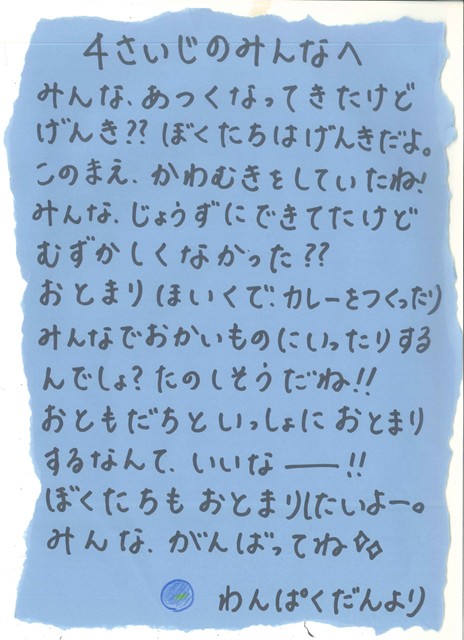 4さいじのみんなへ
みんな、あつくなってきたけど
げんき??ぼくたちはげんきだよ。
このまえ、かわむきをしていたね!
みんな、じょうずにできてたけど
むずかしくなかった??
おとまりほいくで、カレーをつくったり
みんなでおかいものにいったりする
んでしょ?たのしそうだね!!
おともだちといっしょにおとまり
するなんて、いいな――!!
ぼくたちもおとまりしたいよー。
みんな、がんばってね✧✧
わんぱくだんより